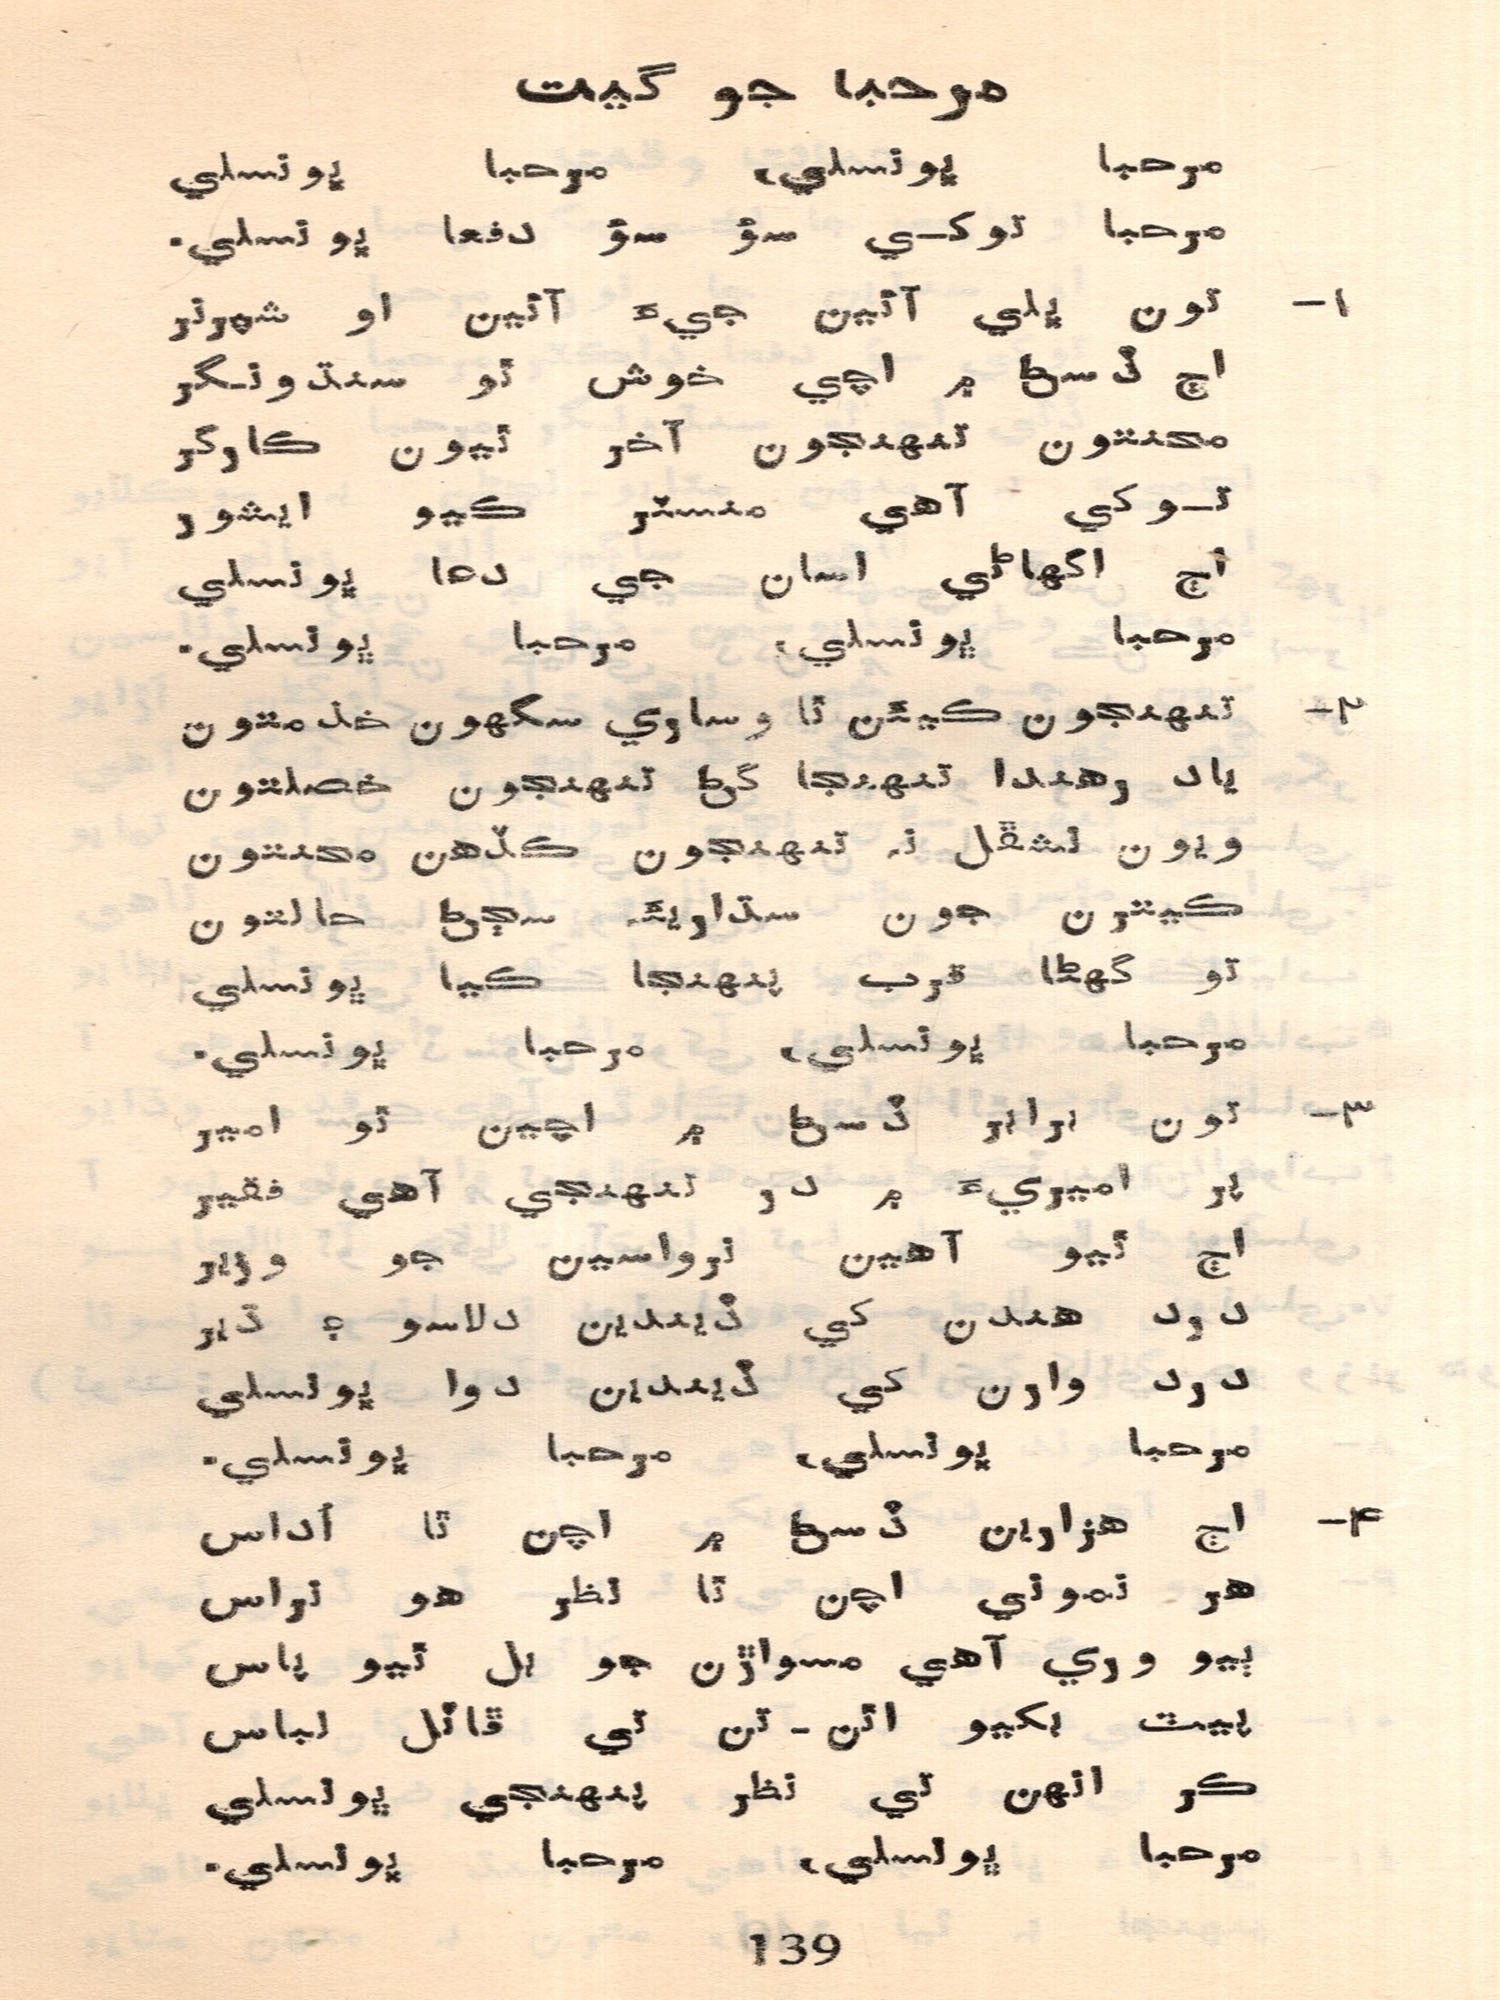 مرحبا جو گيت
مرحبا ڀونسلي، مرحبا ڀونسلي
مرحبا توکي سؤ سؤ دفعا ڀونسلي.
۱- تون ڀلي آئين جيءَ آئين او شهرنر
اڄ ڏسڻ ۾ اچي خوش ٿو سنڌونگر
محنتون تنهنجون آخر ٿيون ڪارگر
توکي آهي منسٽر ڪيو ايشور
اڄ اگهاڻي اسان جي دعا ڀونسلي
مرحبا ڀونسلي، مرحبا ڀونسلي.
۲- تنهنجون ڪيئن ٿا وساري سگهون خدمتون
ياد رهندا تنهنجا گڻ تنهنجون خصلتون
ويون نشڦل نہ تنهنجون ڪڏهن محنتون
ڪيترن جون سڌاريئہ سڄڻ حالتون
تو گهڻا قرب پنهنجا ڪيا ڀونسلي
مرحبا ڀونسلي، مرحبا ڀونسلي.
۳- تون برابر ڏسڻ ۾ اچين ٿو امير
پر اميريءَ ۾ در تنهنجي آهي فقير
اڄ ٿيو آهين نرواسين جو وزير
درد هندن کي ڏيندين دلاسو ۽ ڌير
درد وارن کي ڏيندين دوا ڀونسلي
مرحبا ڀونسلي، مرحبا ڀونسلي.
۴- اڄ هزارين ڏسڻ ۾ اچن ٿا اُداس
هر نموني اچن ٿا نظر هو نراس
ٻيو وري آهي مسواڙن جو بل ٿيو پاس
پيٽ بکيو اٿن - تن تي ڦاٽل لباس
ڪر انهن تي نظر پنهنجي ڀونسلي
مرحبا ڀونسلي، مرحبا ڀونسلي.
139